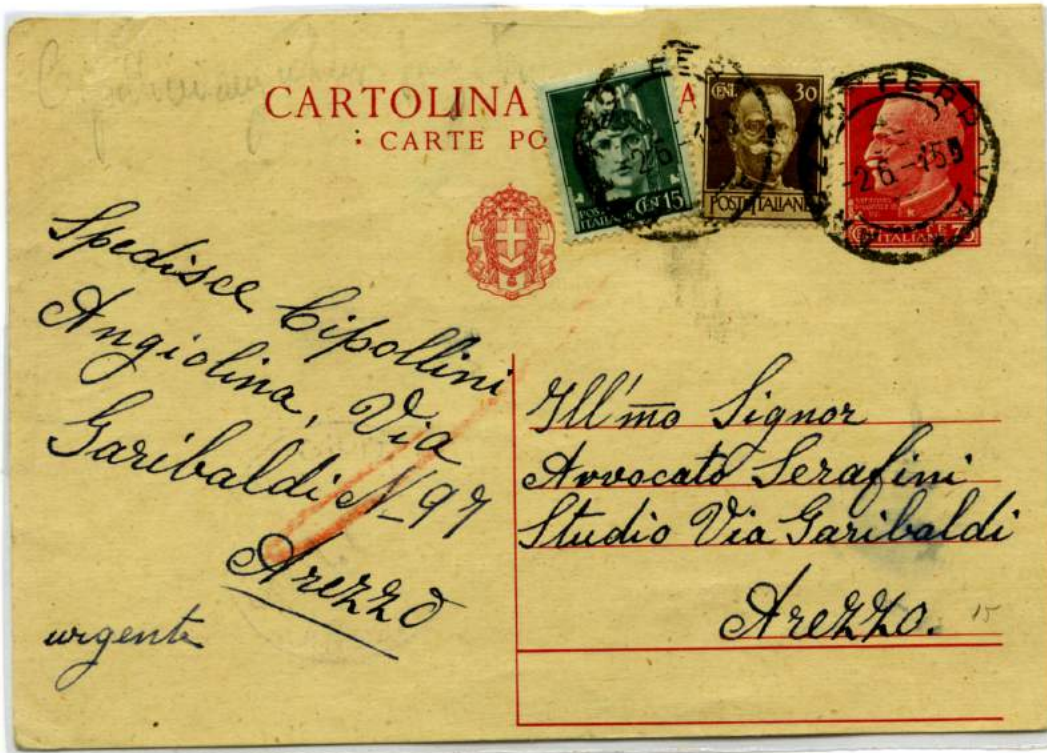 CARTOLINA
CARTE PO
CENT. 15
CENT. 30
POSTE ITALIANE
Spedisce Cipollini
Angiolina, Via
Garibaldi N_97
Arezzo
urgente
Ill'mo Signor
Avvocato Serafini
Studio Via Garibaldi
Arezzo.
15